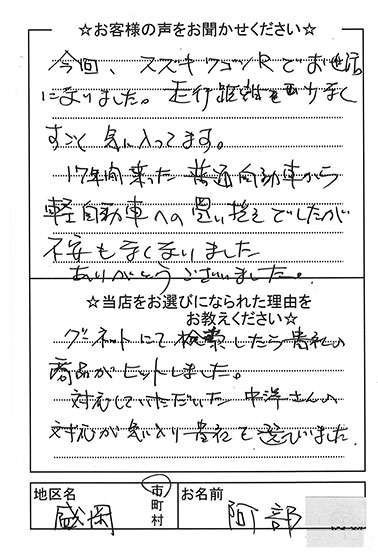 ☆お客様の声をお聞かせください☆
今回、スズキワゴンRでお世話
になりました。走行距離も少なく
すごく気に入ってます。
17年間乗った普通自動車から
軽自動車への買い換えでしたが
不安もなくなりました
ありがとうございました。
☆当店をお選びになられた理由を
お教えください☆
グーネットにて検索したら貴社の
商品がヒットしました。
対応していただいた中洋さんの
対応が気に入り貴社で選びました。
地区名
盛岡
市
町
村
お名前
阿部